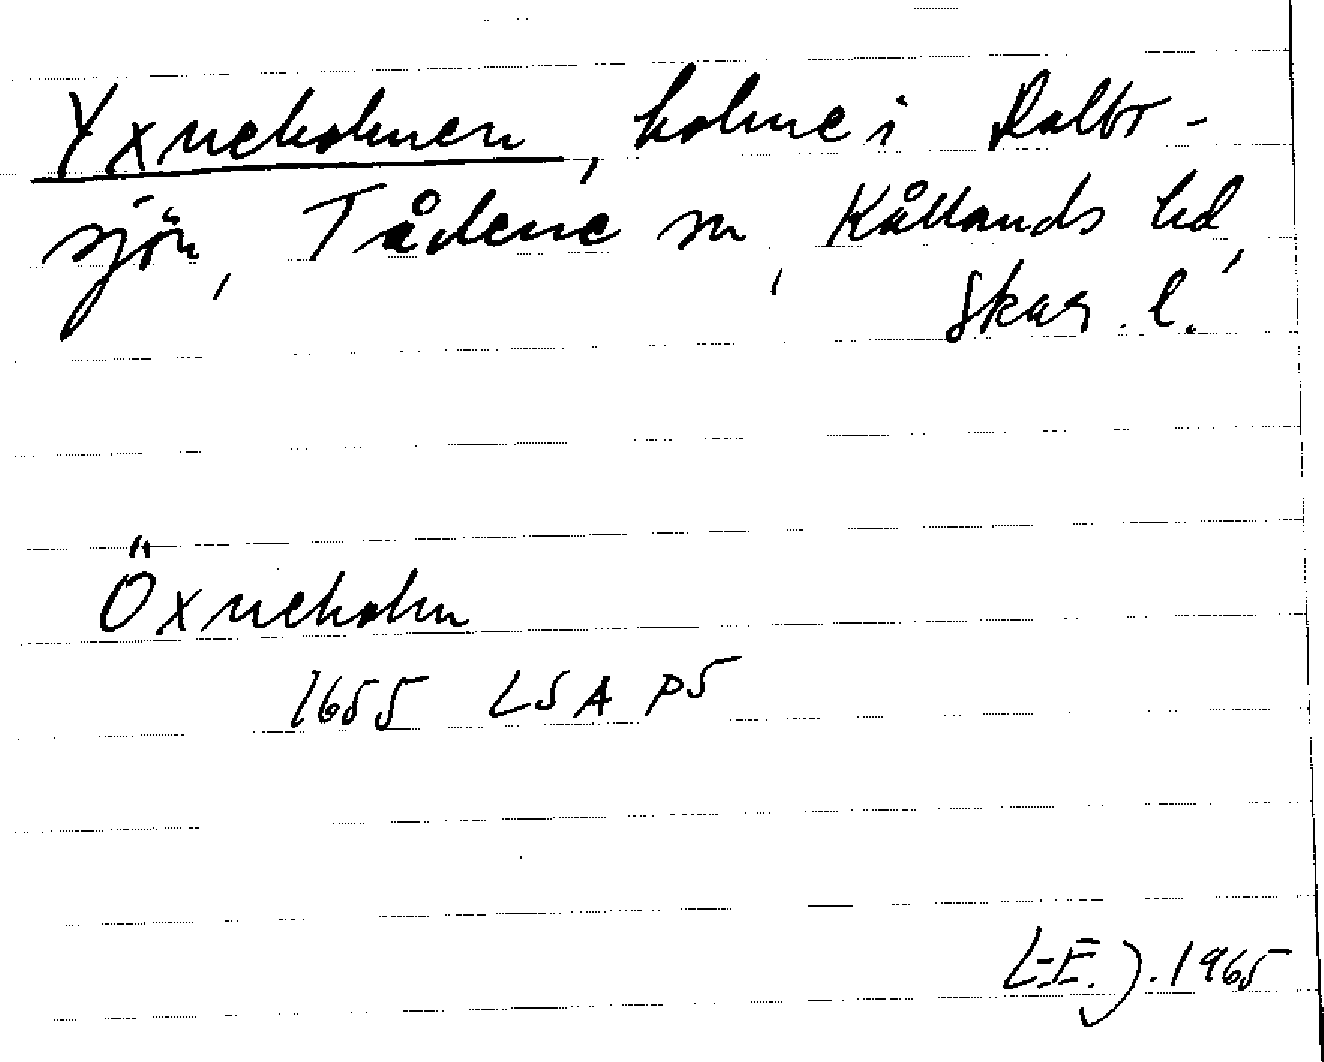 Yxneholmen, holme i Dalbo-
sjön, Tådene sn, Kållands hd,
Skar. l.
Öxneholm
1655 LSA P5
L-E. J. 1965